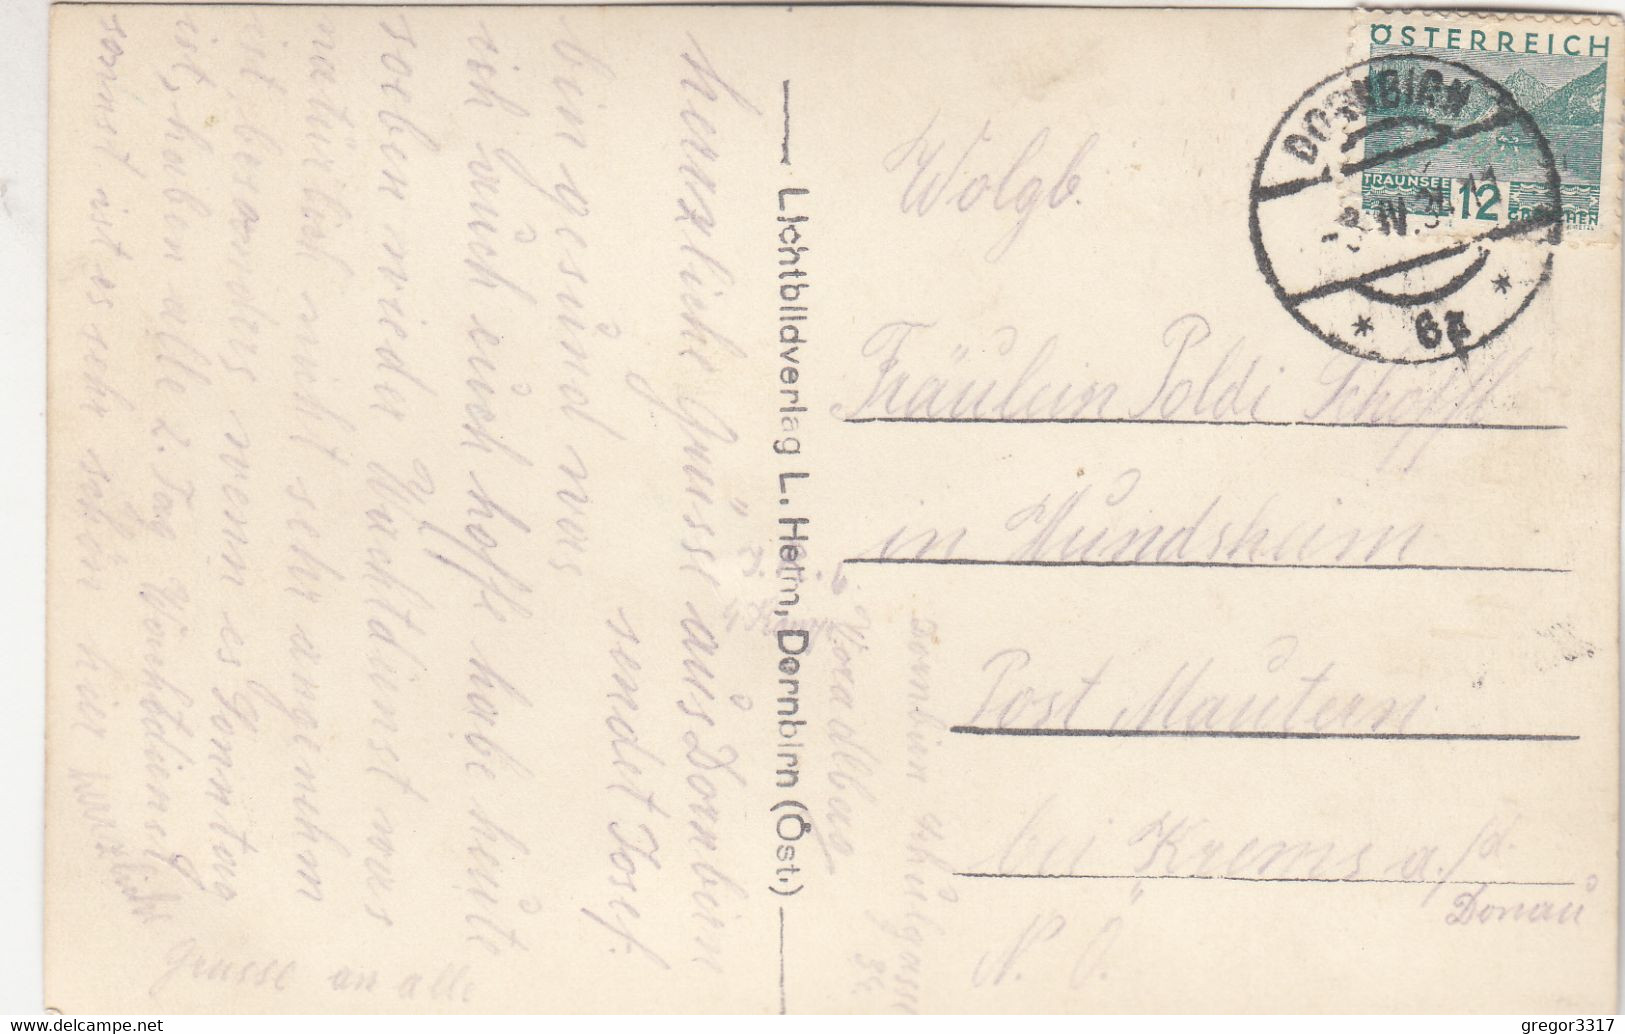 ÖSTERREICH
TRAUNSEE 12 GROSCHEN
DORNBIRN
-8.IV.34.11
* 6a *
Wolgb.
Fräulein Poldi Schöffl
in Hundsheim
Post Mautern
bei Krems a./d.
Donau
N. Ö.
Lichtbildverlag L. Heim, Dornbirn (Öst.)
Herzliche Grüsse aus Dornbirn
sendet Josef.
bin gesund was
ich auch euch hoffe habe heute
soeben wieder Wachtdinst was
natürlich nicht sehr angenehm
ist besonders wenn es Sonntag
ist, haben alle 2. Tag Wachtdienst
sonst ist es sehr schön hier
Herzliche
Grüsse an alle
Voradlberg
Dornbirn
gregor3317
www.delcampe.net